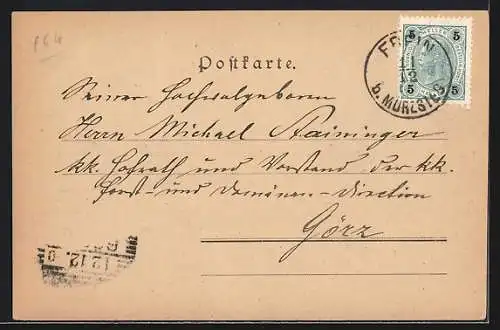 P64
5 5
5 5
FREIN
11
12
b. MÜRZSTEG
Postkarte.
Seiner Hochwolgeboren
Herrn Michael Staininger
kk. Hofrath und Vorstand der kk.
Forst- und Domänen-Direction
Görz
12.12.